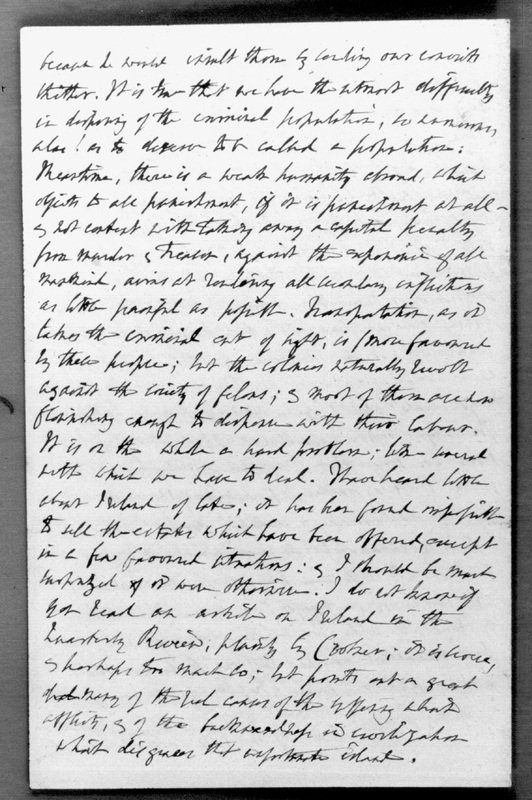 because he would insult them by sending our convicts
thither. It is true that we have the utmost difficulty
in disposing of the criminal population, so numerous,
alas! as to deserve to be called a population:
Meantime, there is a weak humanity abroad, which
objects to all punishment, if it is punishment at all -
& not content with taking away a capital penalty
from murder & treason, against the experience of all
mankind, aims at rendering all secondary inflictions
as little painful as possible. Transportation, as it
takes the criminal out of sight, is more favoured
by these people; but the colonies naturally revolt
against the society of felons; & most of them are now
flourishing enough to dispense with their labour.
It is on the whole a hard problem; like several
with which we have to deal. I have heard little
about Ireland of late; it has been found impossible
to sell the estates which have been offered, except
in a few favoured situations: & I should be much
surprized if it were otherwise. I do not know if
you read an article on Ireland in the
Quarterly Review, plainly by Croker; it is
& perhaps too much so; but points out a great
many of the real causes of the misery about
& of the backwardness in civilization
which disgraces that unfortunate island.